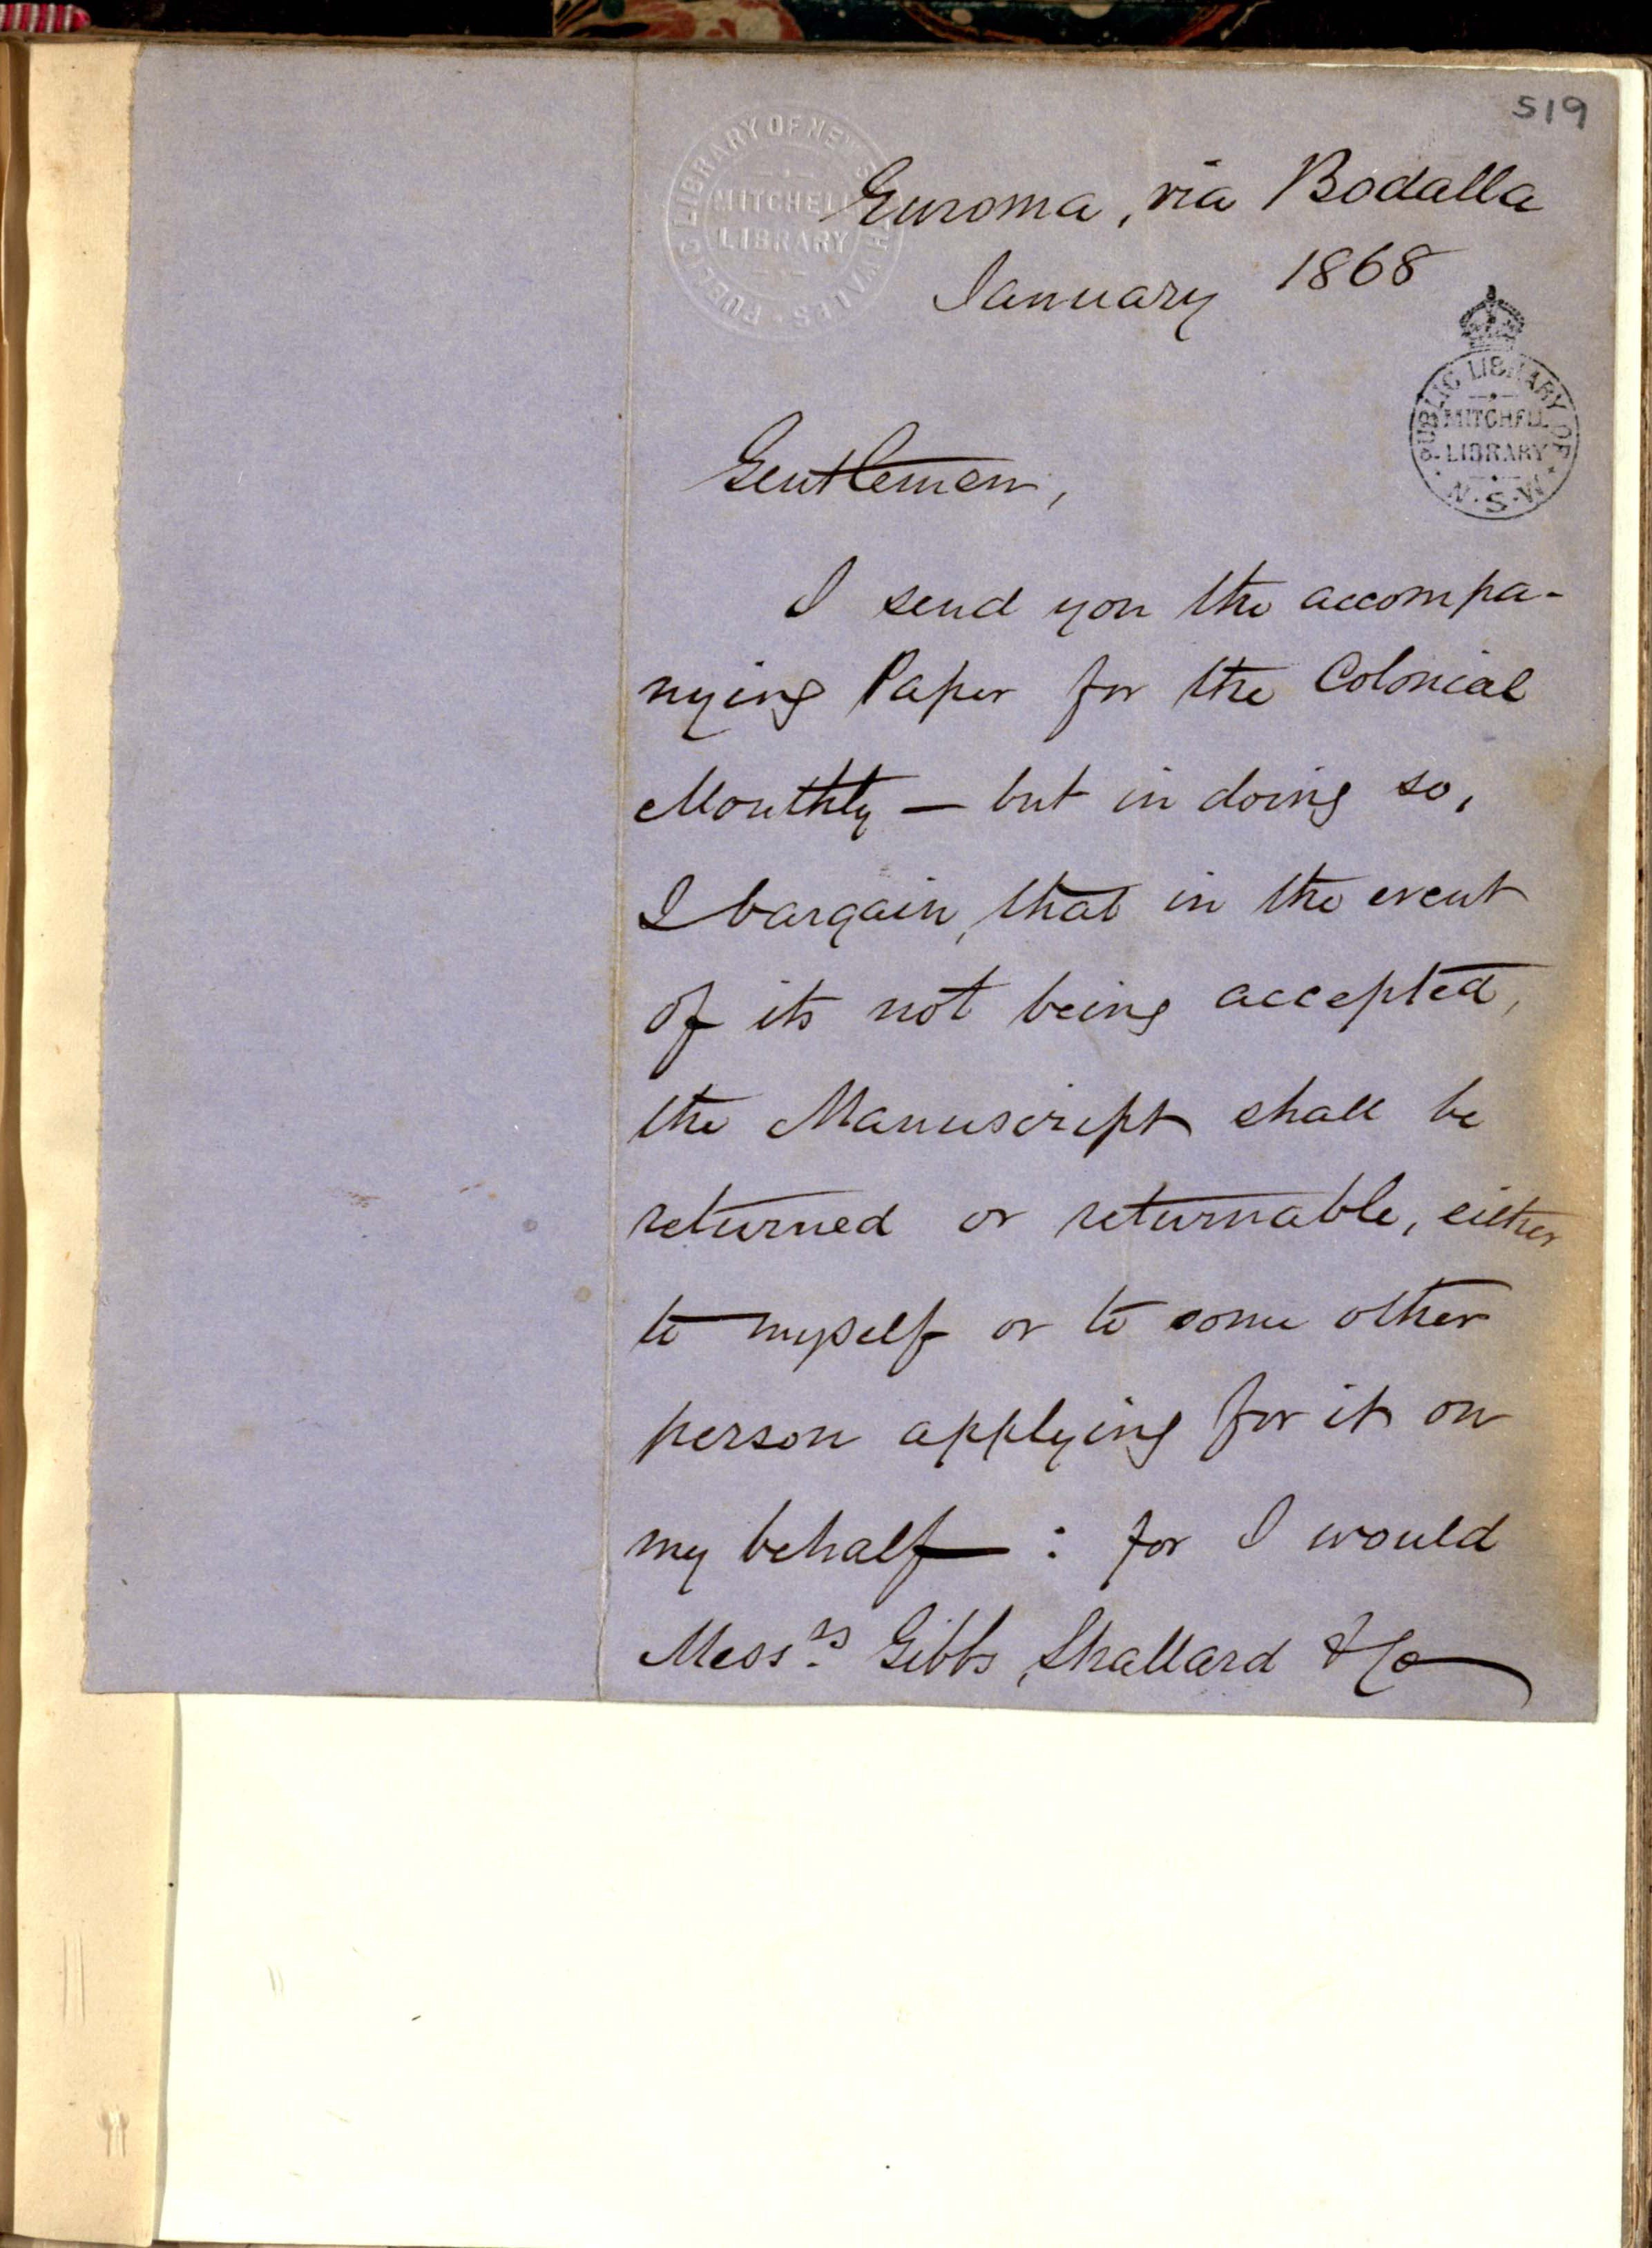 519
PUBLIC LIBRARY OF NEW SOUTH WALES
MITCHELL
LIBRARY
Euroma, via Bodalla
January 1868
PUBLIC LIBRARY OF
MITCHELL
LIBRARY
N.S.W
Gentlemen,
I send you the accompa-
nying Paper for the Colonial
Monthly — but in doing so,
I bargain, that in the event
of its not being accepted,
the Manuscript shall be
returned or returnable, either
to myself or to some other
person applying for it on
my behalf — : for I would
Messrs Gibbs, Shallard & Co